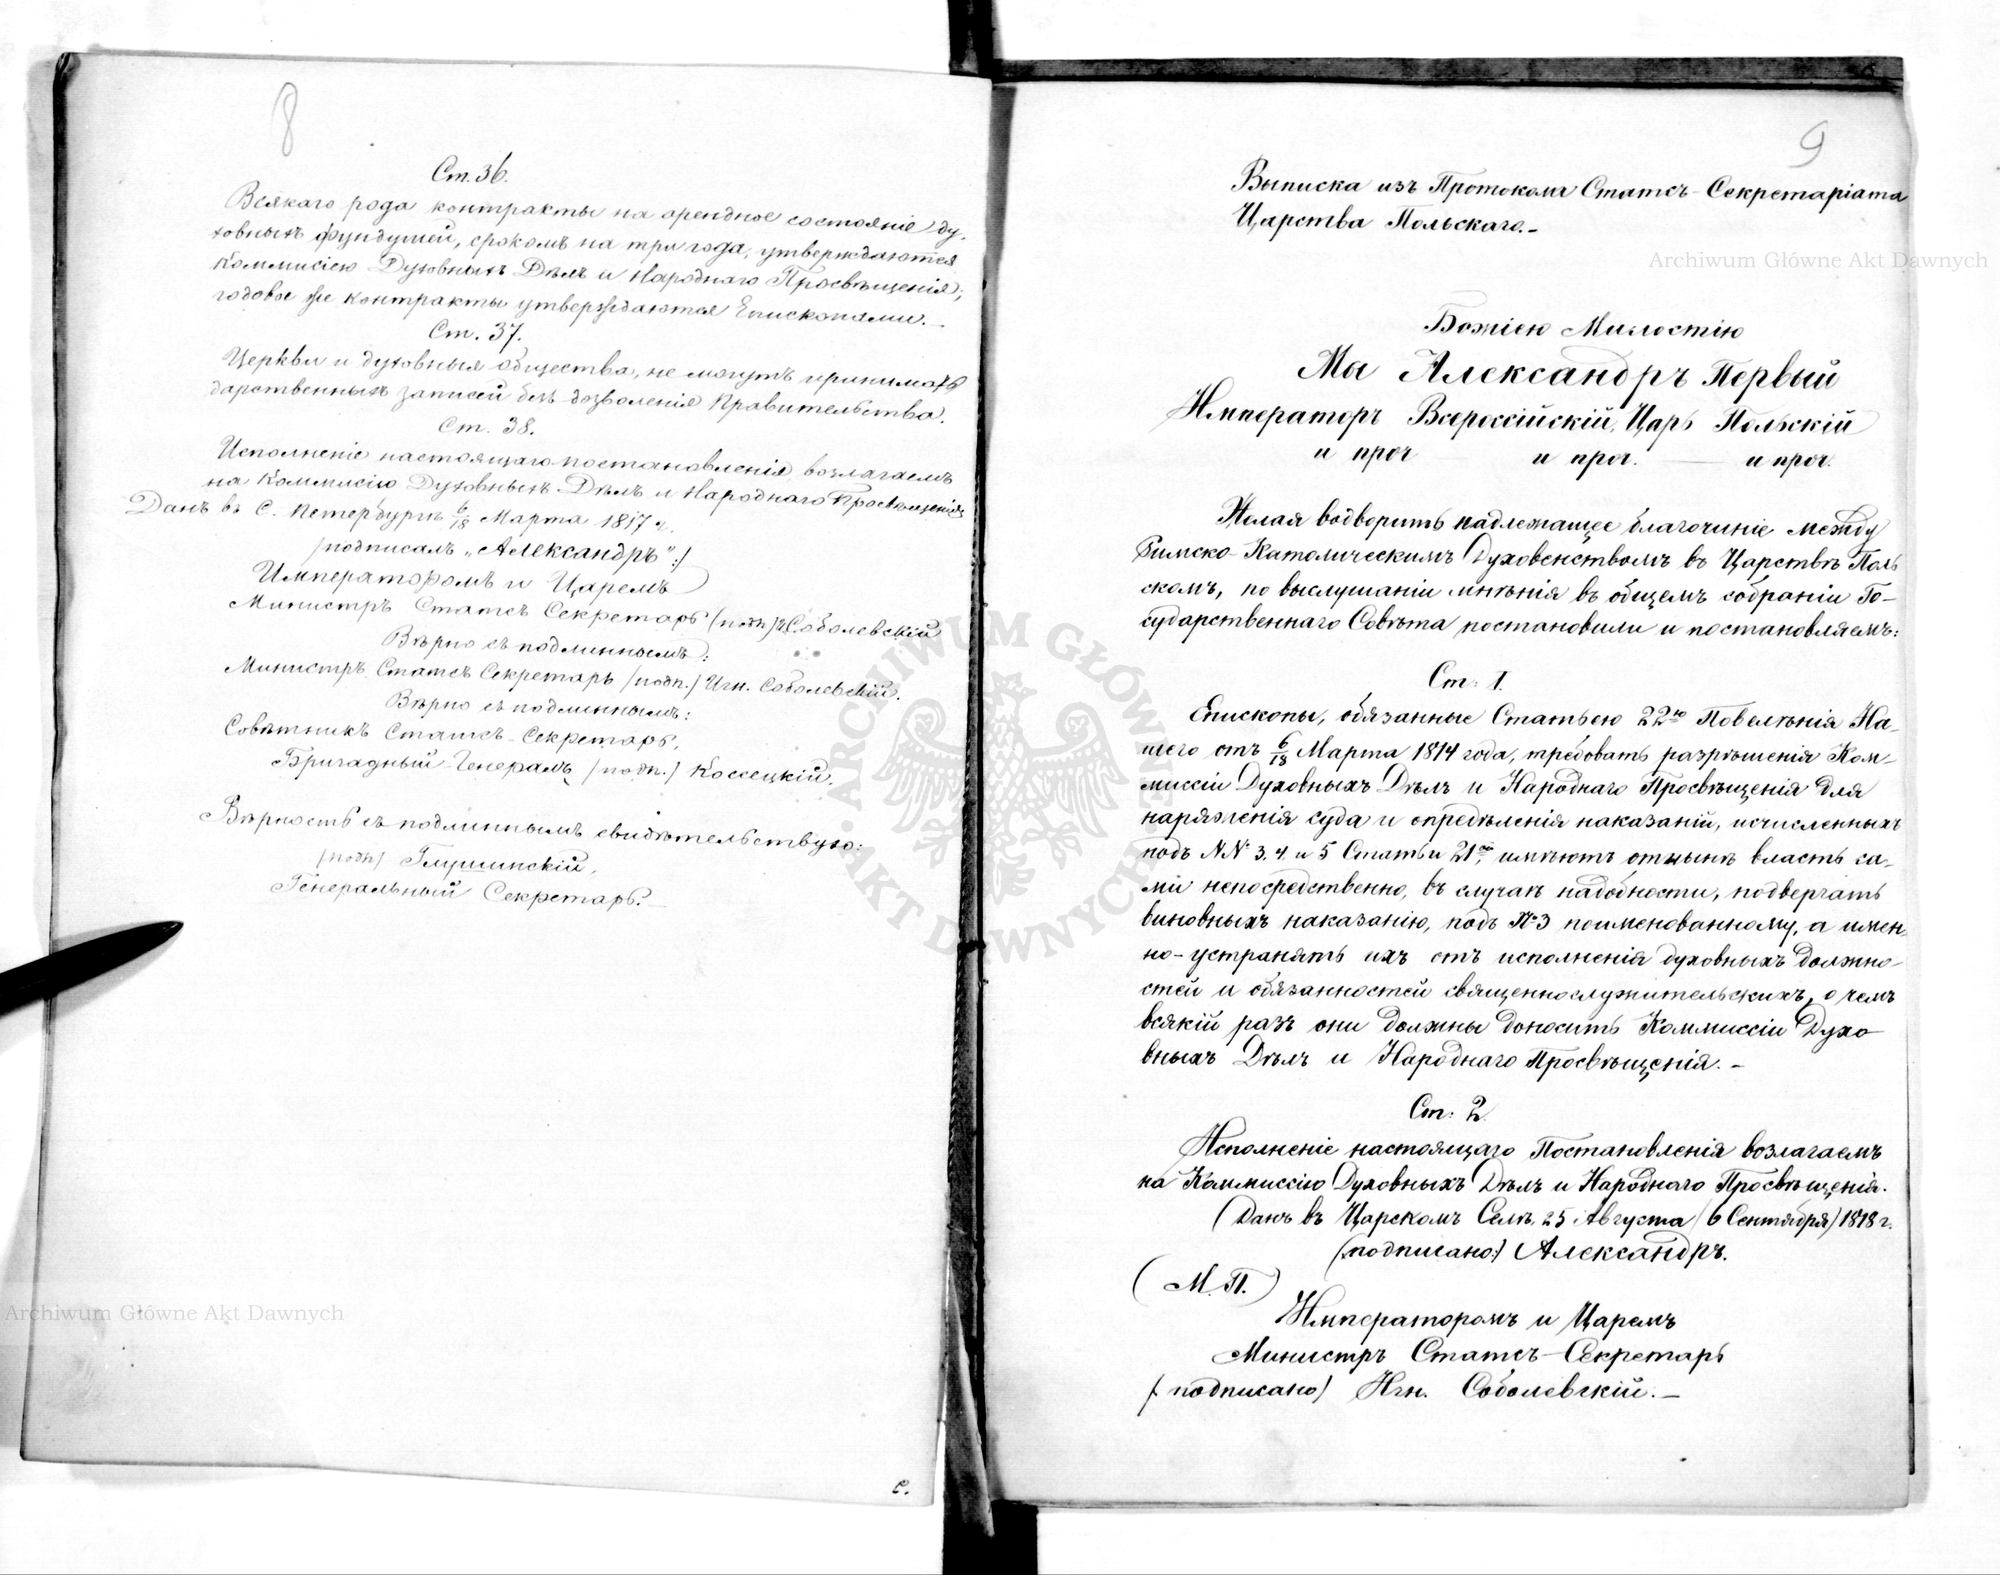 8
Ст. 36.
Всякаго рода контракты на арендное состояніе ду-
ховныхъ фундушей, срокомъ на три года, утверждаются
Коммисіею Духовныхъ Дѣлъ и Народнаго Просвѣщенія;
годовые же контракты утверждаются Епископами.—
Ст. 37.
Церкви и духовныя общества, не могутъ принимать
дарственныхъ записей безъ дозволенія Правительства.
Ст. 38.
Исполненіе настоящаго постановленія возлагаемъ
на Коммисію Духовныхъ Дѣлъ и Народнаго Просвѣщенія
Данъ въ С. Петербургѣ 6/18 Марта 1817 г.
/подписалъ „Александръ":/
Императоромъ и Царемъ
Министръ Статсъ Секретарь (подп.) Соболевскій
Вѣрно съ подлиннымъ:
Министръ Статсъ Секретарь /подп./ Игн. Соболевскій.
Вѣрно съ подлиннымъ:
Совѣтникъ Статсъ-Секретарь,
Бригадный Генералъ /подп./ Коссецкій.
Вѣрность съ подлиннымъ свидѣтельствую:
/подп/ Глушинскій,
Генеральный Секретарь.—
с.
9
Выписка изъ Протокола Статсъ-Секретаріата
Царства Польскаго.—
Божіею Милостію
Мы Александръ Первый
Императоръ Всероссійскій, Царь Польскій
и проч — и проч. — и проч.
Желая водворить надлежащее благочиніе между
Римско-Католическимъ Духовенствомъ въ Царствѣ Поль
скомъ, по выслушаніи мнѣнія въ общемъ собраніи Го-
сударственнаго Совѣта постановили и постановляемъ:
Ст. 1.
Епископы, обязанные Статьею 22ю Повелѣнія На-
шего отъ 6/18 Марта 1814 года, требовать разрѣшенія Ком-
миссіи Духовныхъ Дѣлъ и Народнаго Просвѣщенія для
наряженія суда и опредѣленія наказаній, исчисленныхъ
подъ NN 3. 4. и 5 Статьи 21ой, имѣютъ отнынѣ власть са-
ми непосредственно, въ случаѣ надобности, подвергать
виновныхъ наказанію, подъ №3 поименованному, а имен
но-устранять ихъ отъ исполненія духовныхъ должно-
стей и обязанностей священнослужительскихъ, о чемъ
всякій разъ они должны доносить Коммиссіи Духо
вныхъ Дѣлъ и Народнаго Просвѣщенія.—
Ст: 2.
Исполненіе настоящаго Постановленія возлагаемъ
на Коммиссію Духовныхъ Дѣлъ и Народнаго Просвѣщенія.
(Данъ въ Царскомъ Селѣ, 25 Августа (6 Сентября) 1818 г.
(подписано:) Александръ.
(М. П.)
Императоромъ и Царемъ
Министръ Статсъ-Секретарь
/. подписано/ Игн. Соболевскій.—
Archiwum Główne Akt Dawnych
Archiwum Główne Akt Dawnych
ARCHIWUM GŁÓWNE AKT DAWNYCH